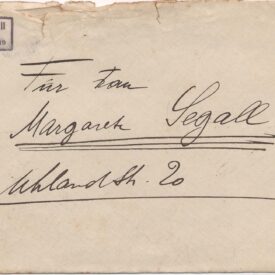 Für Frau
Margarete Segall
Uhlandstr. 20